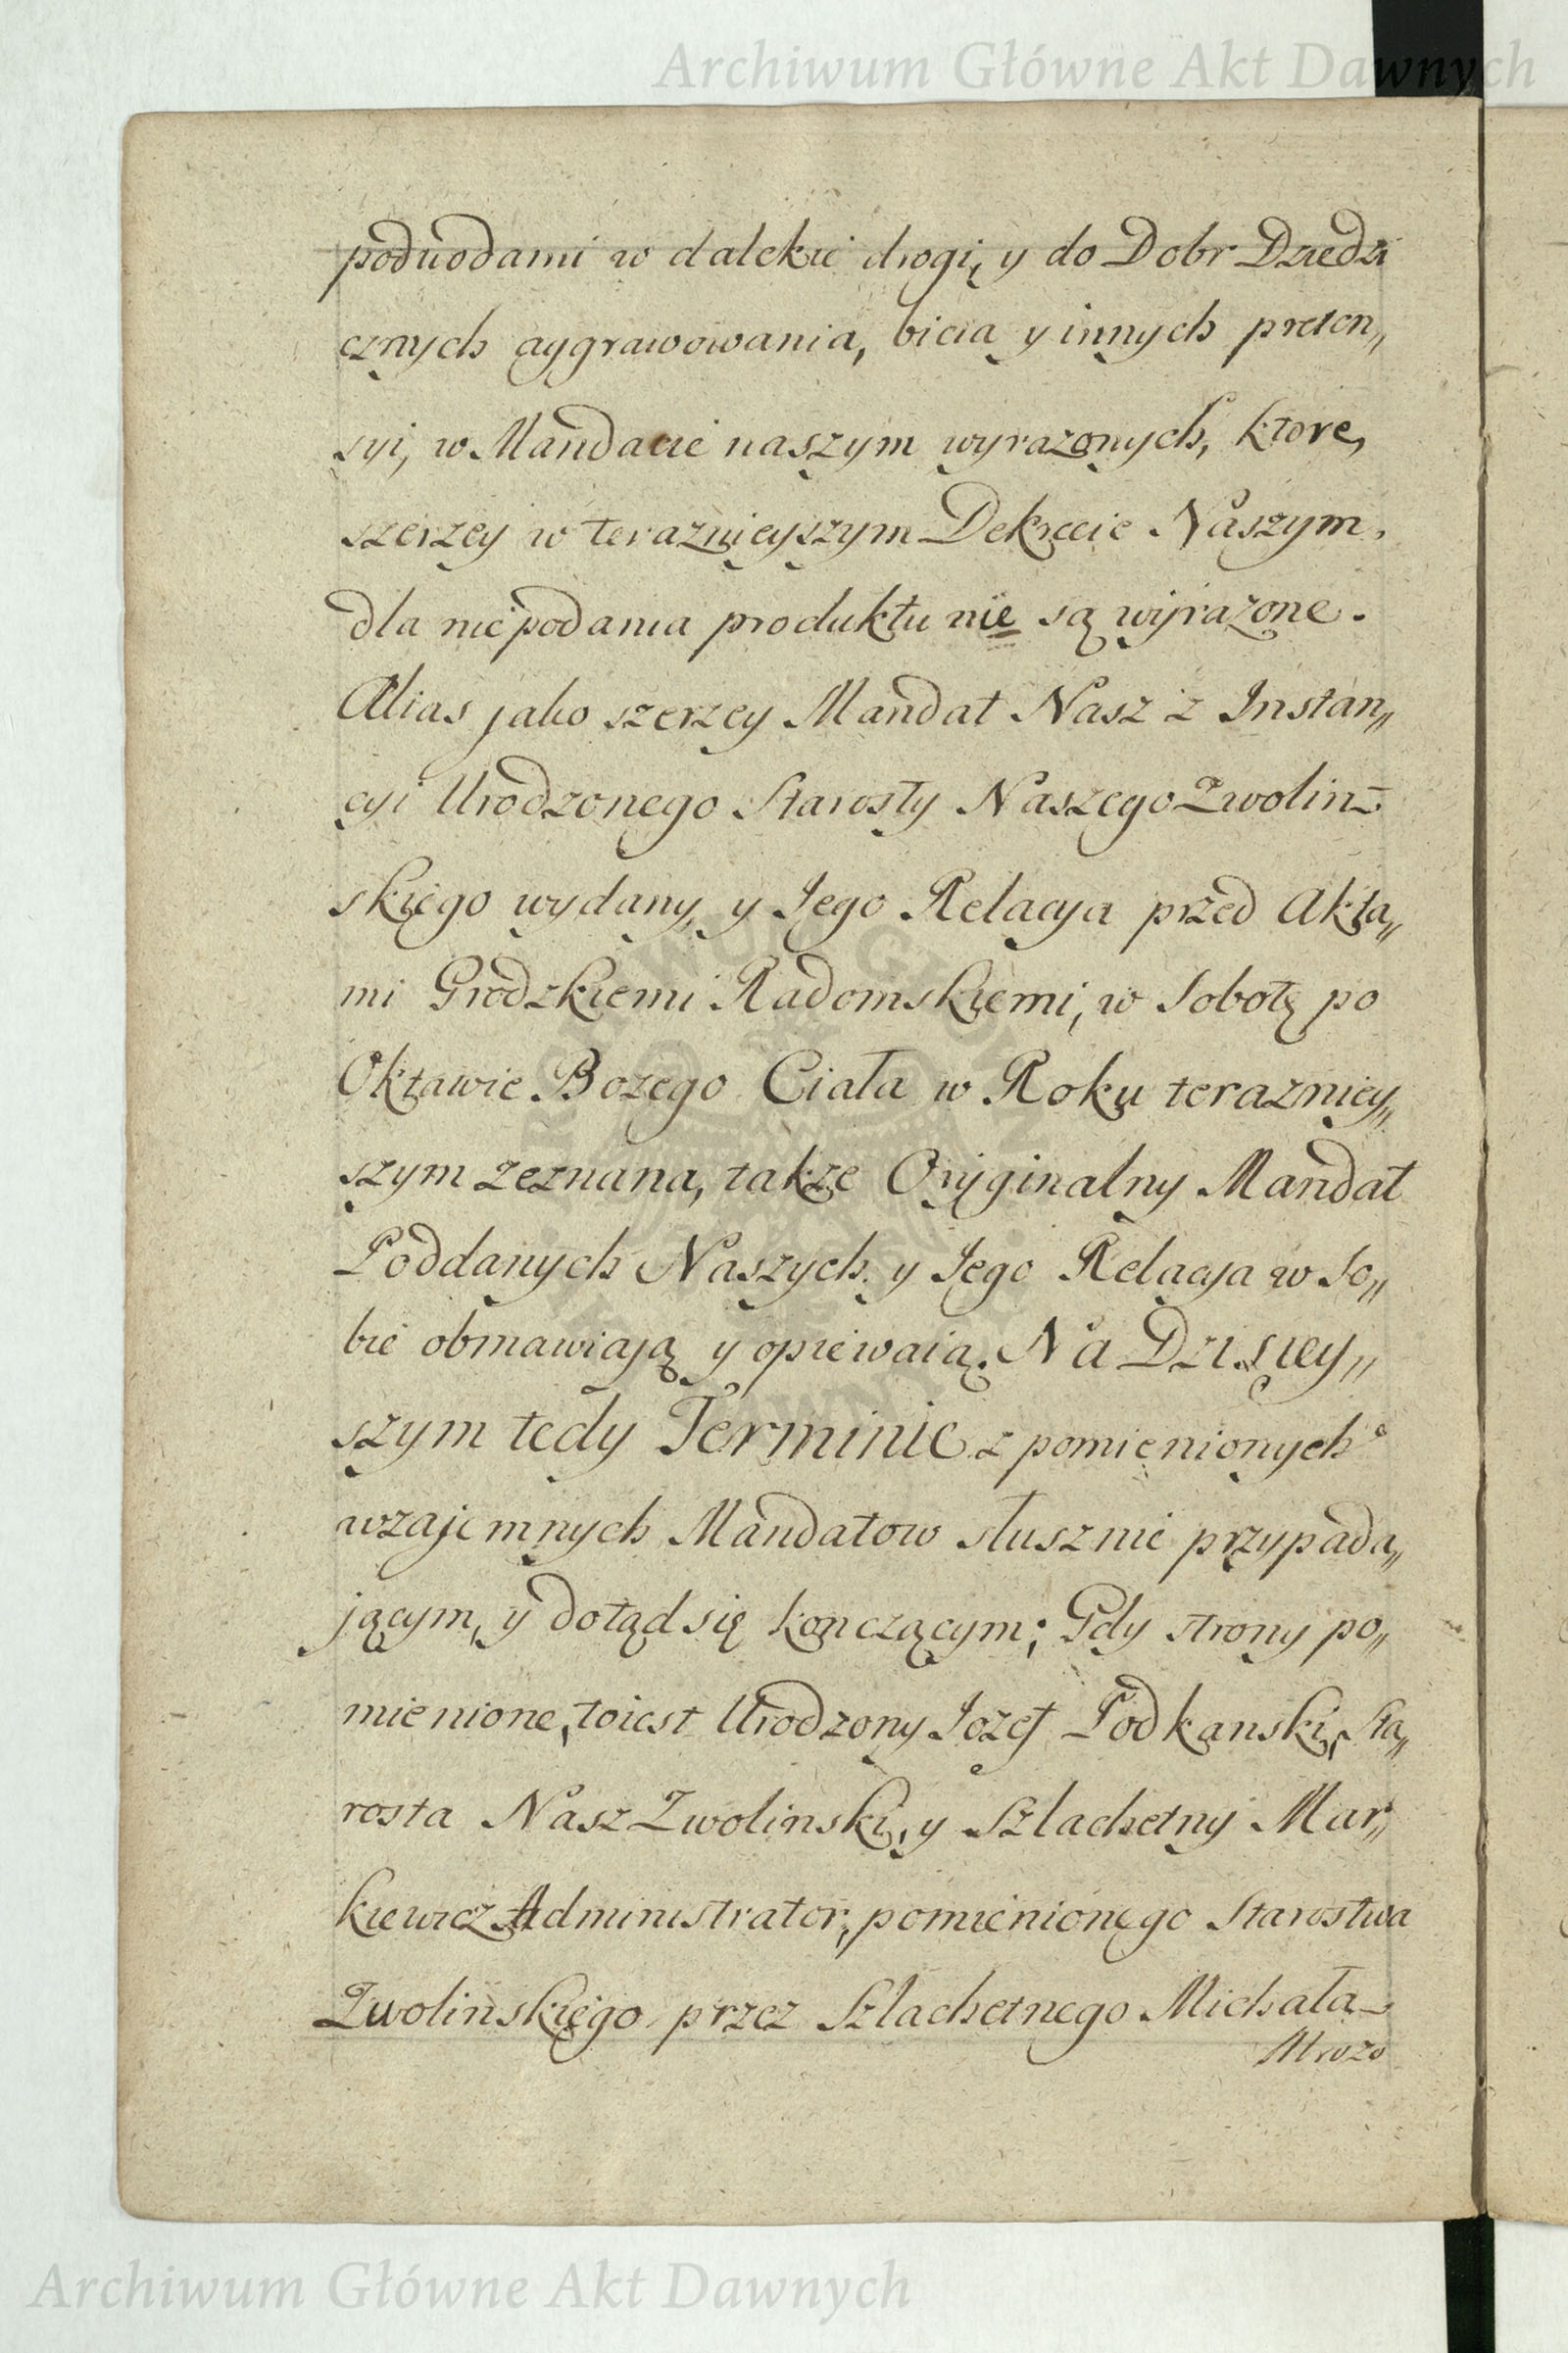 Archiwum Główne Akt Dawnych
poduodami w dalekie drogi, y do Dobr Dziedzi
cznych aggrawowania, bicia y innych preten„
syi, w Mandacie naszym wyrazonych, ktore,
szerzey w teraznieyszym Dekrecie Naszym,
dla niepodania produktu nie są wyrazone.
Alias jako szerzey Mandat Nasz z Instan„
cyi Urodzonego Starosty Naszego Zwolin-
skiego wydany, y Jego Relacya przed Akta„
mi Grodzkiemi Radomskiemi, w Sobotę po
Oktawie Bozego Ciała w Roku terazniey„
szym zeznana, takze Oryginalny Mandat
Poddanych Naszych y Jego Relacya w so„
bie obmawiają y opiewaią. Na Dzisiey„
szym tedy Terminie z pomienionych
wzajemnych Mandatow słusznie przypada„
jącym, y dotąd się konczącym; Gdy strony po„
mienione, toiest Urodzony Jozef Podkanski, Sta„
rosta Nasz Zwolinski, y Szlachetny Mar„
kiewicz Administrator, pomienionego Starostwa
Zwolinskiego, przez Szlachetnego Michała
Mrozo
Archiwum Główne Akt Dawnych